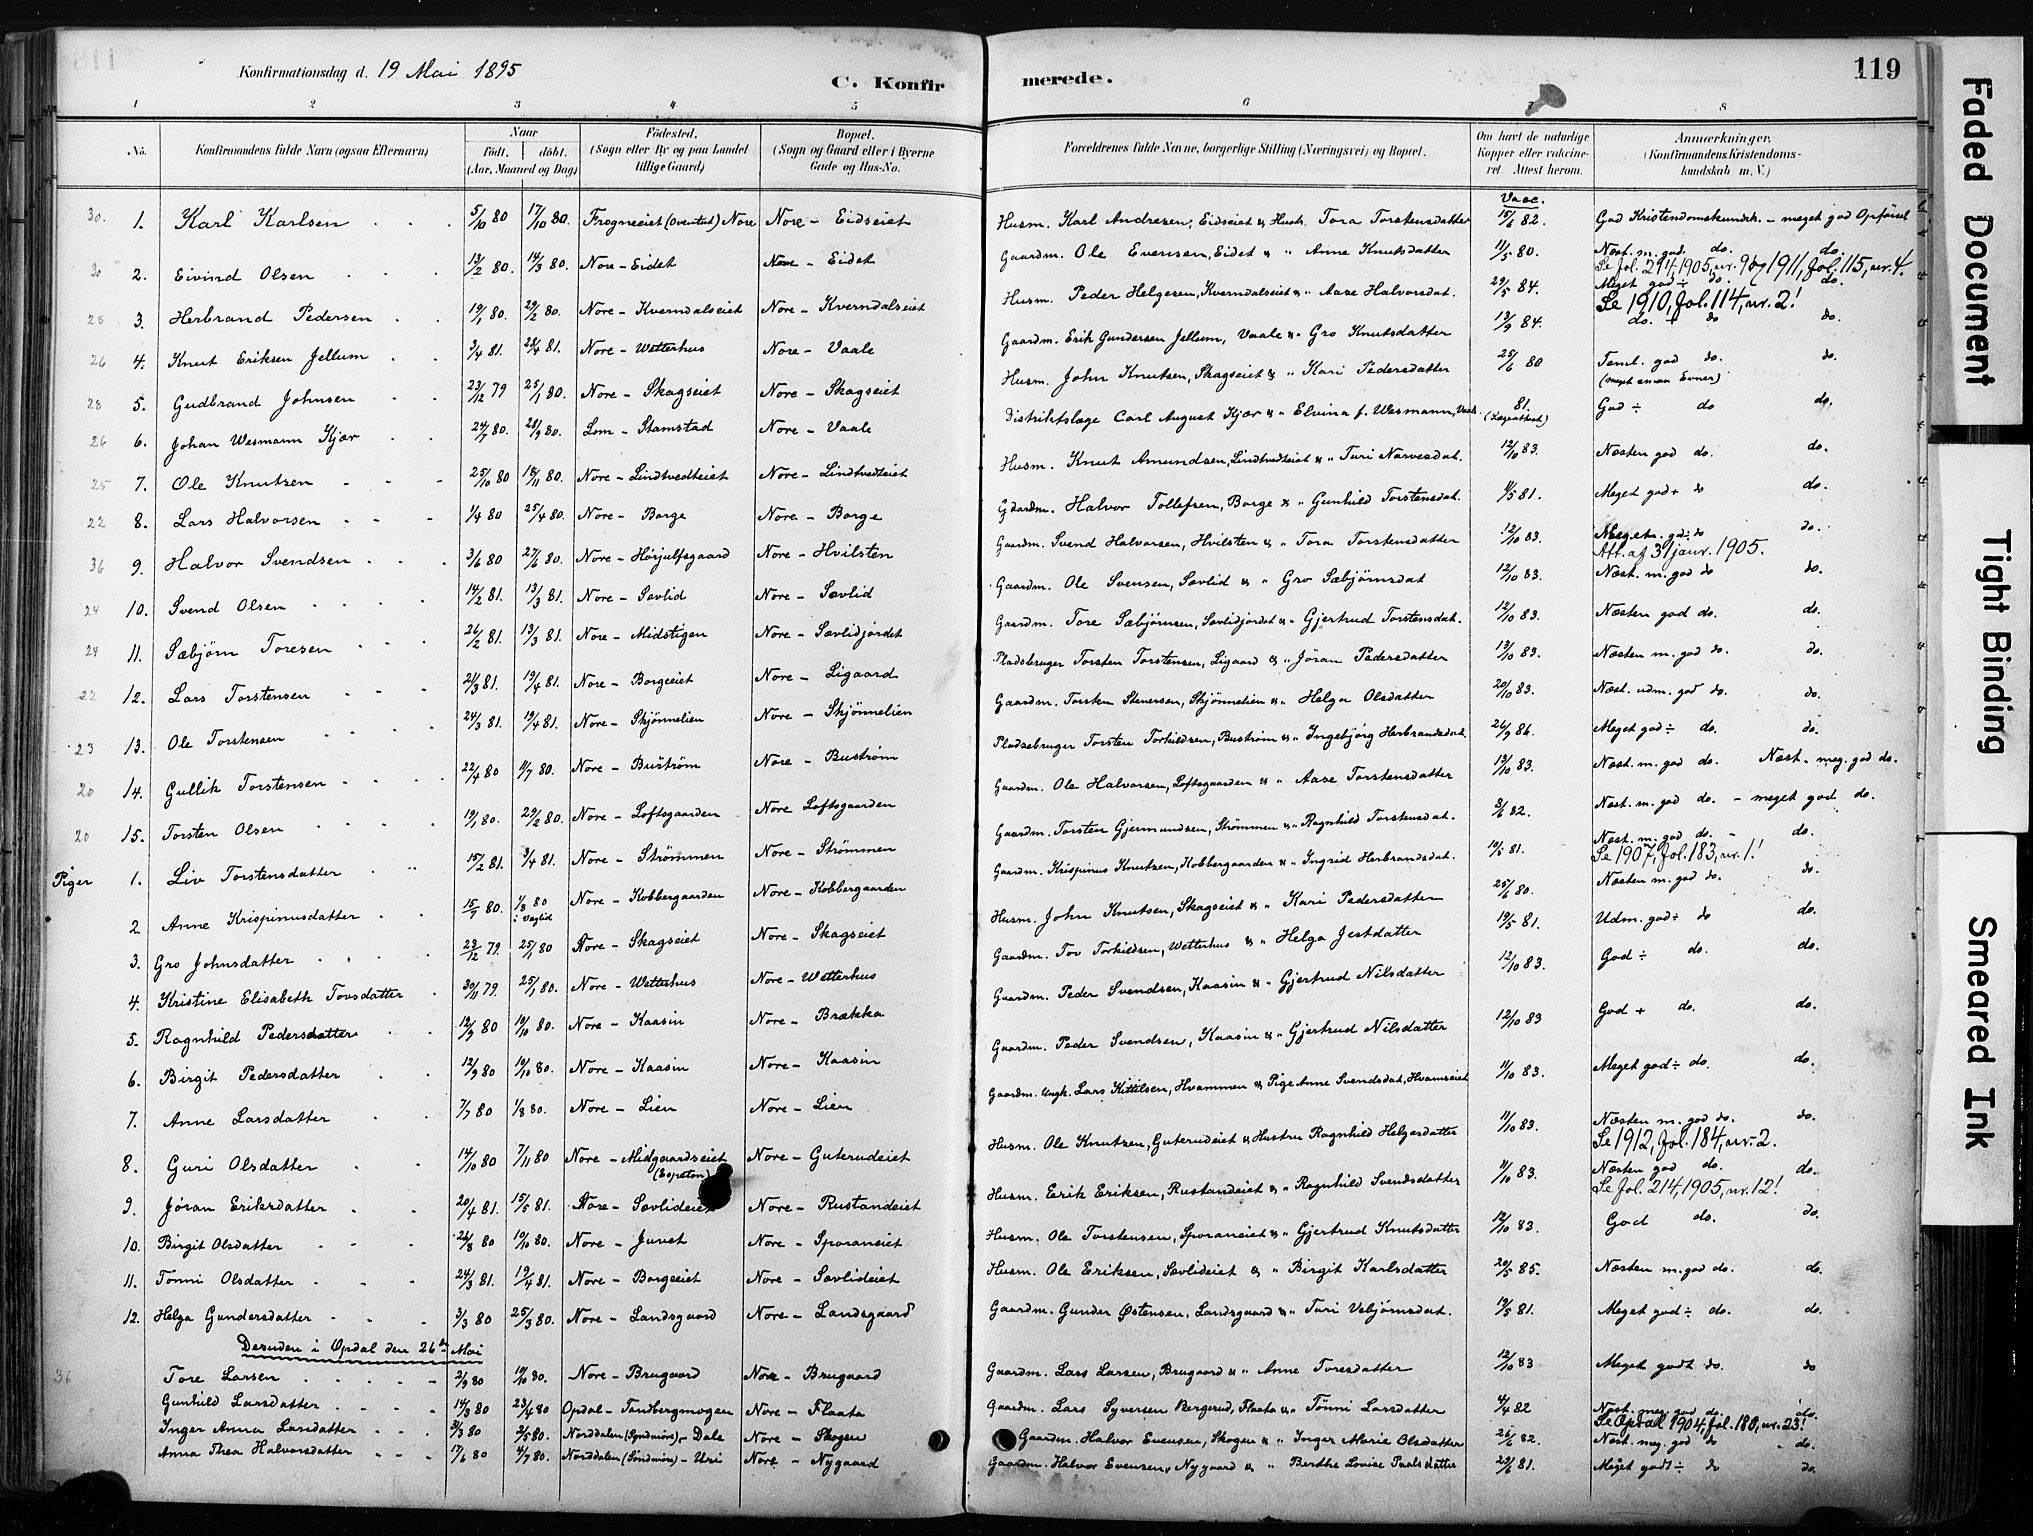 Konfirmationsdag d. 19 Mai 1895
C. Konfirmerede.
119
1 2 3 4 5 6 8
No. Konfirmandens fulde Navn (ogsaa Efternavn) Naar født. døbt. (Aar, Maaned og Dag) Fødested. (Sogn eller By og paa Landet tillige Gaard) Bopæl. (Sogn og Gaard eller i Byerne Gade og Hus-No. Forældrenes fulde Navne, borgerlige Stilling (Næringsvei) og Bopæl. Om havt de naturlige Kopper eller vakcineret. Attest herom. Anmærkninger. (Konfirmandens Kristendomskundskab m. V.)
Vacc.
30. 1. Karl Karlsen 5/10 80 17/10 80. Frogneeiet (Overtut) Nore Nore - Eidseiet Husm. Karl Andresen, Eidseiet & Hustr. Tora Torstensdatter 15/6 82. God Kristendomskundsk. - meget god Opførsel
30 2. Eivind Olsen 13/2 80. 14/3 80. Nore - Eidet Nore - Eidet Gaardm. Ole Evensen, Eidet & " Anne Knutsdatter 11/5 80. Næst. m. god do. do.
Se fol. 214, 1905, nr. 9 og 1911, fol. 115, nr. 4.
28 3. Herbrand Pedersen 19/1 80. 29/2 80. Nore - Kverndalseiet Nore - Kverndalseiet Husm. Peder Helgesen, Kverndalseiet & " Aase Halvorsdat. 29/5 84. Meget god ÷ do. do.
Se 1910, fol. 114, nr. 2!
26 4. Knut Eriksen Jellum 3/4 81. 28/4 81. Nore - Wetterhus Nore - Vaale Gaardm. Erik Gundersen Jellum, Vaale & " Gro Knutsdatter 13/9 84. do. + do do.
28 5. Gudbrand Johnsen 23/12 79 25/1 80. Nore - Skagseiet Nore - Skagseiet Husm. John Knutsen, Skagseiet & " Kari Pedersdatter 25/6 80 Teml. god do. do.
(meget smaa Evner)
26 6. Johan Wesmann Kjær 24/7 80. 28/9 80. Lom - Stamstad Nore - Vaale Distriktslæge Carl August Kjær & " Elvina f. Wesmann, Vaale. 81. (Lægeattest) God ÷ do do.
25 7. Ole Knutsen 25/10 80 18/11 80. Nore - Lindtvedteiet Nore - Lindtvedteiet Husm. Knut Amundsen, Lindtvedteiet & " Turi Narvesdat. 12/10 83. Næsten god do. do.
22 8. Lars Halvorsen 1/4 80 25/4 80. Nore - Borge Nore - Borge Gaardm. Halvor Tollefsen, Borge & " Gunhild Torstensdat. 11/5 81. Meget god + do do.
36 9. Halvor Svendsen 3/6 80 27/6 80. Nore - Hørjulfsgaard Nore - Hvilsten Gaardm. Svend Halvorsen, Hvilsten & " Tora Torstensdatter 12/10 83. god do do.
Att. af 31 janr. 1905.
24 10. Svend Olsen 14/2 81. 13/3 81. Nore - Sævlid Nore - Sævlid Gaardm. Ole Svensen, Sævlid & " Gro Sæbjørnsdat 12/10 83. Næst. m. god do do.
24 11. Sæbjørn Toresen 26/2 81. 13/3 81. Nore - Midstigen Nore - Sævlidjordet Gaardm. Tore Sæbjørnsen, Sævlidjordet & " Gjertrud Torstensdat. 12/10 83. Næsten god do. do.
22 12. Lars Torstensen 21/3 81. 19/4 81. Nore - Borgeeiet Nore - Ligaard Pladsbruger Torsten Torstensen, Ligaard & " Jøran Pedersdatter 13/10 83. Næsten m. god do. do.
23 13. Ole Torstensen 24/3 81. 19/4 81. Nore - Skjønnelien Nore - Skjønnelien Gaardm. Torsten Stenersen, Skjønnelien & " Helga Olsdatter 20/10 83. Næst. udm. god do. do.
20 14. Gullik Torstensen 22/4 80 11/7 80. Nore - Buström Nore - Buström Pladsebruger Torsten Torkildsen, Buström & " Ingebjörg Herbrandsdat. 26/9 86. Meget god ÷ do. do.
20 15. Torsten Olsen 19/1 80. 29/2 80. Nore - Loftsgaarden Nore Loftsgaarden Gaardm. Ole Halvorsen, Loftsgaarden & " Aase Torstensdatter 13/10 83. Næst. m. god do. Næst. meg. god do.
Piger 1. Liv Torstensdatter 15/2 81. 3/4 81. Nore - Strömmen Nore - Strömmen Gaardm. Torsten Gjermundsen, Strömmen & " Ragnhild Torstensdat. 3/6 82. Næst. m. god do. - meget god do.
2. Anne Krispinusdatter 15/7 80. 1/8 80 i Veglid Nore - Kobbergaarden Nore - Kobbergaarden Gaardm. Krispinus Knutsen, Kobbergaarden & " Ingrid Herbrandsdat. 10/5 81. Næst. m. god do. - do.
Se 1907, fol. 183, nr. 1!
3. Gro Johnsdatter 23/12 79. 25/1 80 Nore - Skagseiet Nore - Skagseiet Husm. John Knutsen, Skagseiet & " Kari Pedersdatter 25/6 80. Næsten m. god do. do.
4. Kristine Elisabeth Tovsdatter 30/11 79. 25/1 80. Nore - Wetterhus Nore - Wetterhus Gaardm. Tov Torkildsen, Wetterhus & " Helga Jestdatter 19/5 81. Udm. god ÷ do do.
5. Ragnhild Pedersdatter 12/9 80 10/10 80. Nore - Kaasin Nore - Brækka Gaardm. Peder Svendsen, Kaasin & " Gjertrud Nilsdatter 12/10 83. God ÷ do. do.
6. Birgit Pedersdatter 12/9 80 10/10 80. Nore - Kaasin Nore - Kaasin Gaardm. Peder Svendsen, Kaasin & " Gjertrud Nilsdatter 12/10 83 God + do. do.
7. Anne Larsdatter 7/7 80 1/8 80. Nore - Lien Nore - Lien Gaardm. Ungk. Lars Kittilsen, Hvammen & Pige Anne Svendsdat, Hvamseiet 11/10 83. Meget god ÷ do. do.
8. Guri Olsdatter 14/10 80 7/11 80 Nore - Midgaardseiet Nore - Guterudeiet Husm. Ole Knutsen, Guterudeiet & Hustru Ragnhild Helgesdatter 11/10 83. Næsten m. god do. do.
Se 1912, fol. 184, nr. 2.
9. Jøran Eriksdatter 20/4 81. 15/5 81. Nore - Sævlideiet Nore - Rustandeiet Husm. Erik Eriksen, Rustandeiet & " Ragnhild Svendsdatter 11/10 83. Næsten god do. do.
Se fol. 214, 1905, nr. 12!
10. Birgit Olsdatter 26/8 80 10/10 80. Nore - Juvet Nore - Sporaneiet Husm. Ole Torstensen, Sporaneiet & " Gjertrud Knutsdatter 12/10 83. God do. do.
11. Tönni Olsdatter 24/3 81. 19/4 81. Nore - Borgeeiet Nore - Sævlideiet Husm. Ole Eriksen, Sævlideiet & " Birgit Karlsdatter 20/5 85. Næsten m. god do. do.
12. Helga Gundersdatter 3/3 80 25/3 80. Nore - Landsgaard Nore - Landsgaard Gaardm. Gunder Østensen, Landsgaard & " Turi Vebjørnsdat. 19/5 81. Meget god ÷ do. do.
Desuden i Opdal den 26de Mai
36 Tore Larsen 2/9 80 10/10 80. Nore - Brugaard Nore - Brugaard Gaardm. Lars Larsen, Brugaard & " Anne Toresdatter 12/10 83 Meget godt do. do
Gunhild Larsdatter 14/3 80 23/4 80 Opdal - Tandbergmogen Nore - Flaata Gaardm. Lars Syversen Bergerud, Flaata & " Tönni Larsdatter 4/4 82 Næst. meg. god do. do.
Se Opdal 1904, fol. 180, nr. 23!
Inger Anna Larsdatter 31/3 80 2/5 80. Norddalen (Syndmöre) - Dale Nore - Skogen Gaardm. Halvor Evensen, Skogen & " Inger Marie Olsdatter 26/6 82. Næst. meg. god do - do.
Anna Thea Halvorsdatter 17/6 80 4/7 80. Norddalen (Söndmöre) - Uri Nore - Nygaard Gaardm. Halvor Evensen, Nygaard & " Berthe Lovise Paulsdatter 29/6 81. Meget godt ÷ do do.
Faded Document
Tight Binding
Smeared Ink